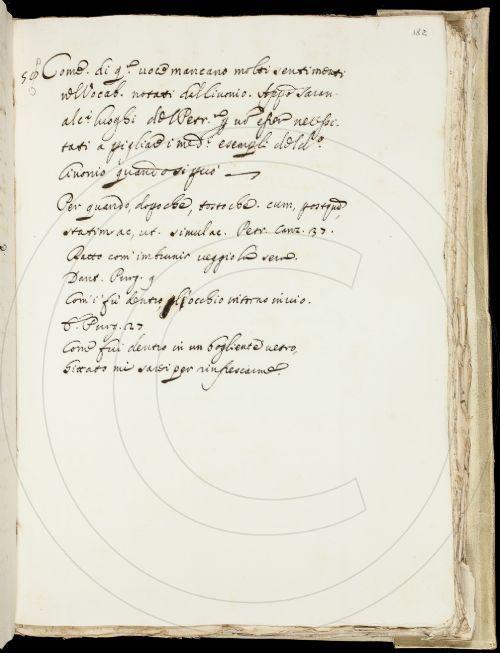 182
Come. di q.a voce mancano molti sentimenti
nel Vocab. notati dal Livonio. Appo saran-
alc.i luoghi del Petr.
tati a pigliare i med.i esempli del d.o
Livonio quando si può
Per quando, dopo che, tosto che. cum, postquã,
statim ac, ut. simulac. Petr. Canz. 37.
Ratto com' imbrunir veggio la sera.
Dant. Purg. 9
Com'i' fu' dentro l'occhio intorno invio.
E Purg. 27
Come fui dentro in un bogliente vetro,
Gittato mi sarei per rinfrescarme.